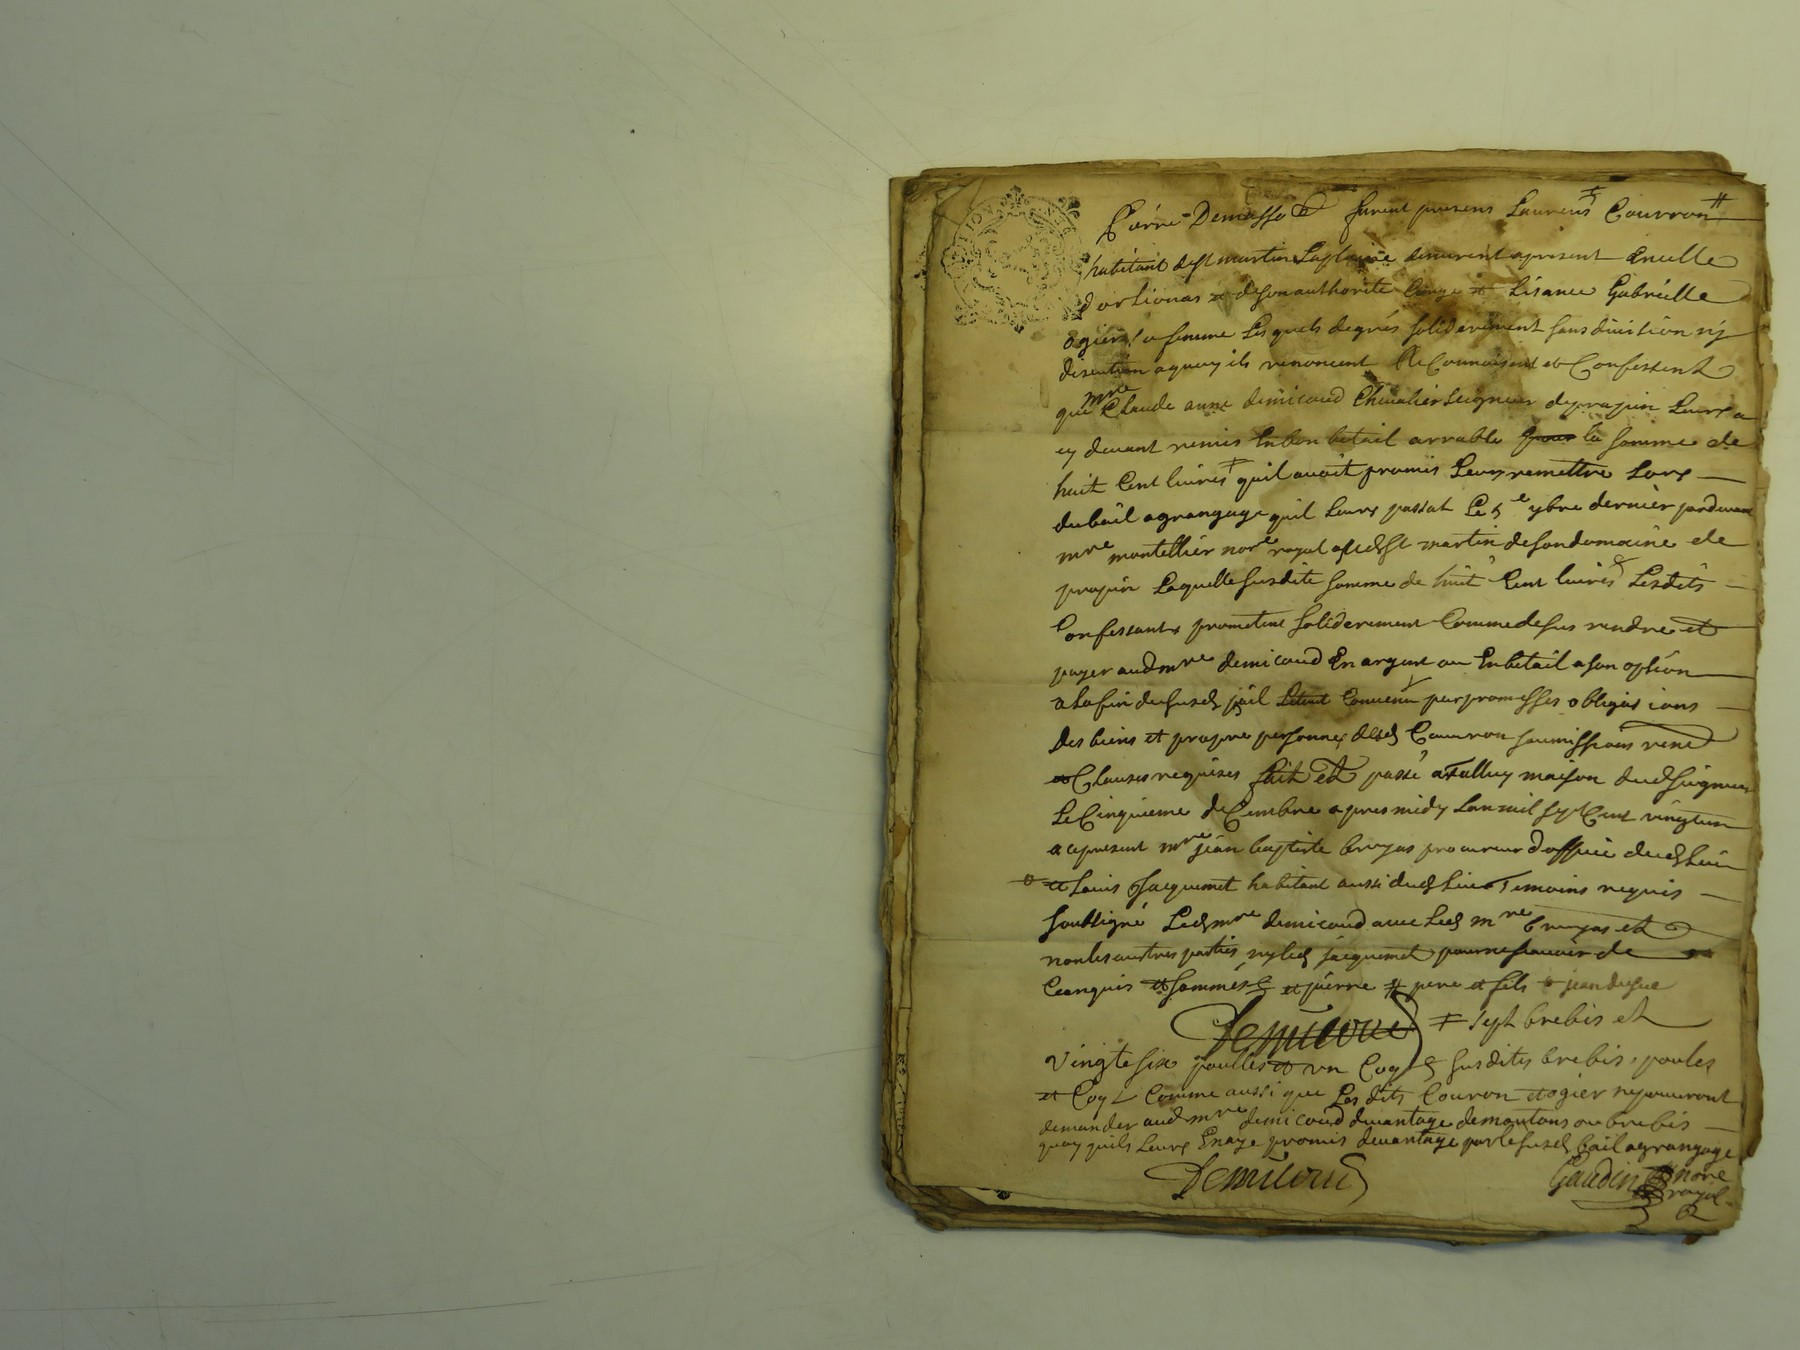 furent presens Laurens Courron
habitant de st martin demeurent apresent
de son authorite Gabrielle
ogier sa femme Lesquels de grés soliderement sans division ny
discution aquoy ils renoncent Reconnoissent et Confessent
que mre Claude anne demicoud Chevalier seigneur de prapin Leurs a
cy devant remis En bon betail arrable pour la somme de
huit Cent livres ‡ quil avoit promis Leurs remettre Lors
du bail agrangage quil Leurs passat Le 5e 7bre dernier pardevant
mre montellier nore royal aud st martin de son domaine de
prapin Laquelle susdite somme de huit Cent livres & Lesdits
Confessants prometent soliderement Comme desus rendre et
payer aud mre demicoud En argent ou En betail a son option
a la fin du susd bail par promesses obligations
des biens et propre personne dud Couvron soumissions renon
et Clauses requises fait et passé a Talluy maison dud seigneur
Le Cinquieme deCembre apres midy Lan mil sept Cent vingt un
a ce present mre jean baptiste bruyas procureur d'office dud Lieu
et Louis Jacquemet habitant aussi dud Lieu Temoins requis
soubsigné Led mre demicoud avec Led mre bruyas et
non les austres parties ny led jacquemet pour ne scavoir de
Ce enquis et sommés et pierre # pere et fils
Demicoud ‡ sept brebis et
vingt six poulles et un Coq & susdites brebis, poules
et Coq Comme aussi que Lesdits Couron et ogier ne pourront
demander aud mre demicoud davantage de moutons ou brebis
quoy quils Leurs En aye promis davantage par le susd bail agrangage
Demicoud Gaudin nore
royal